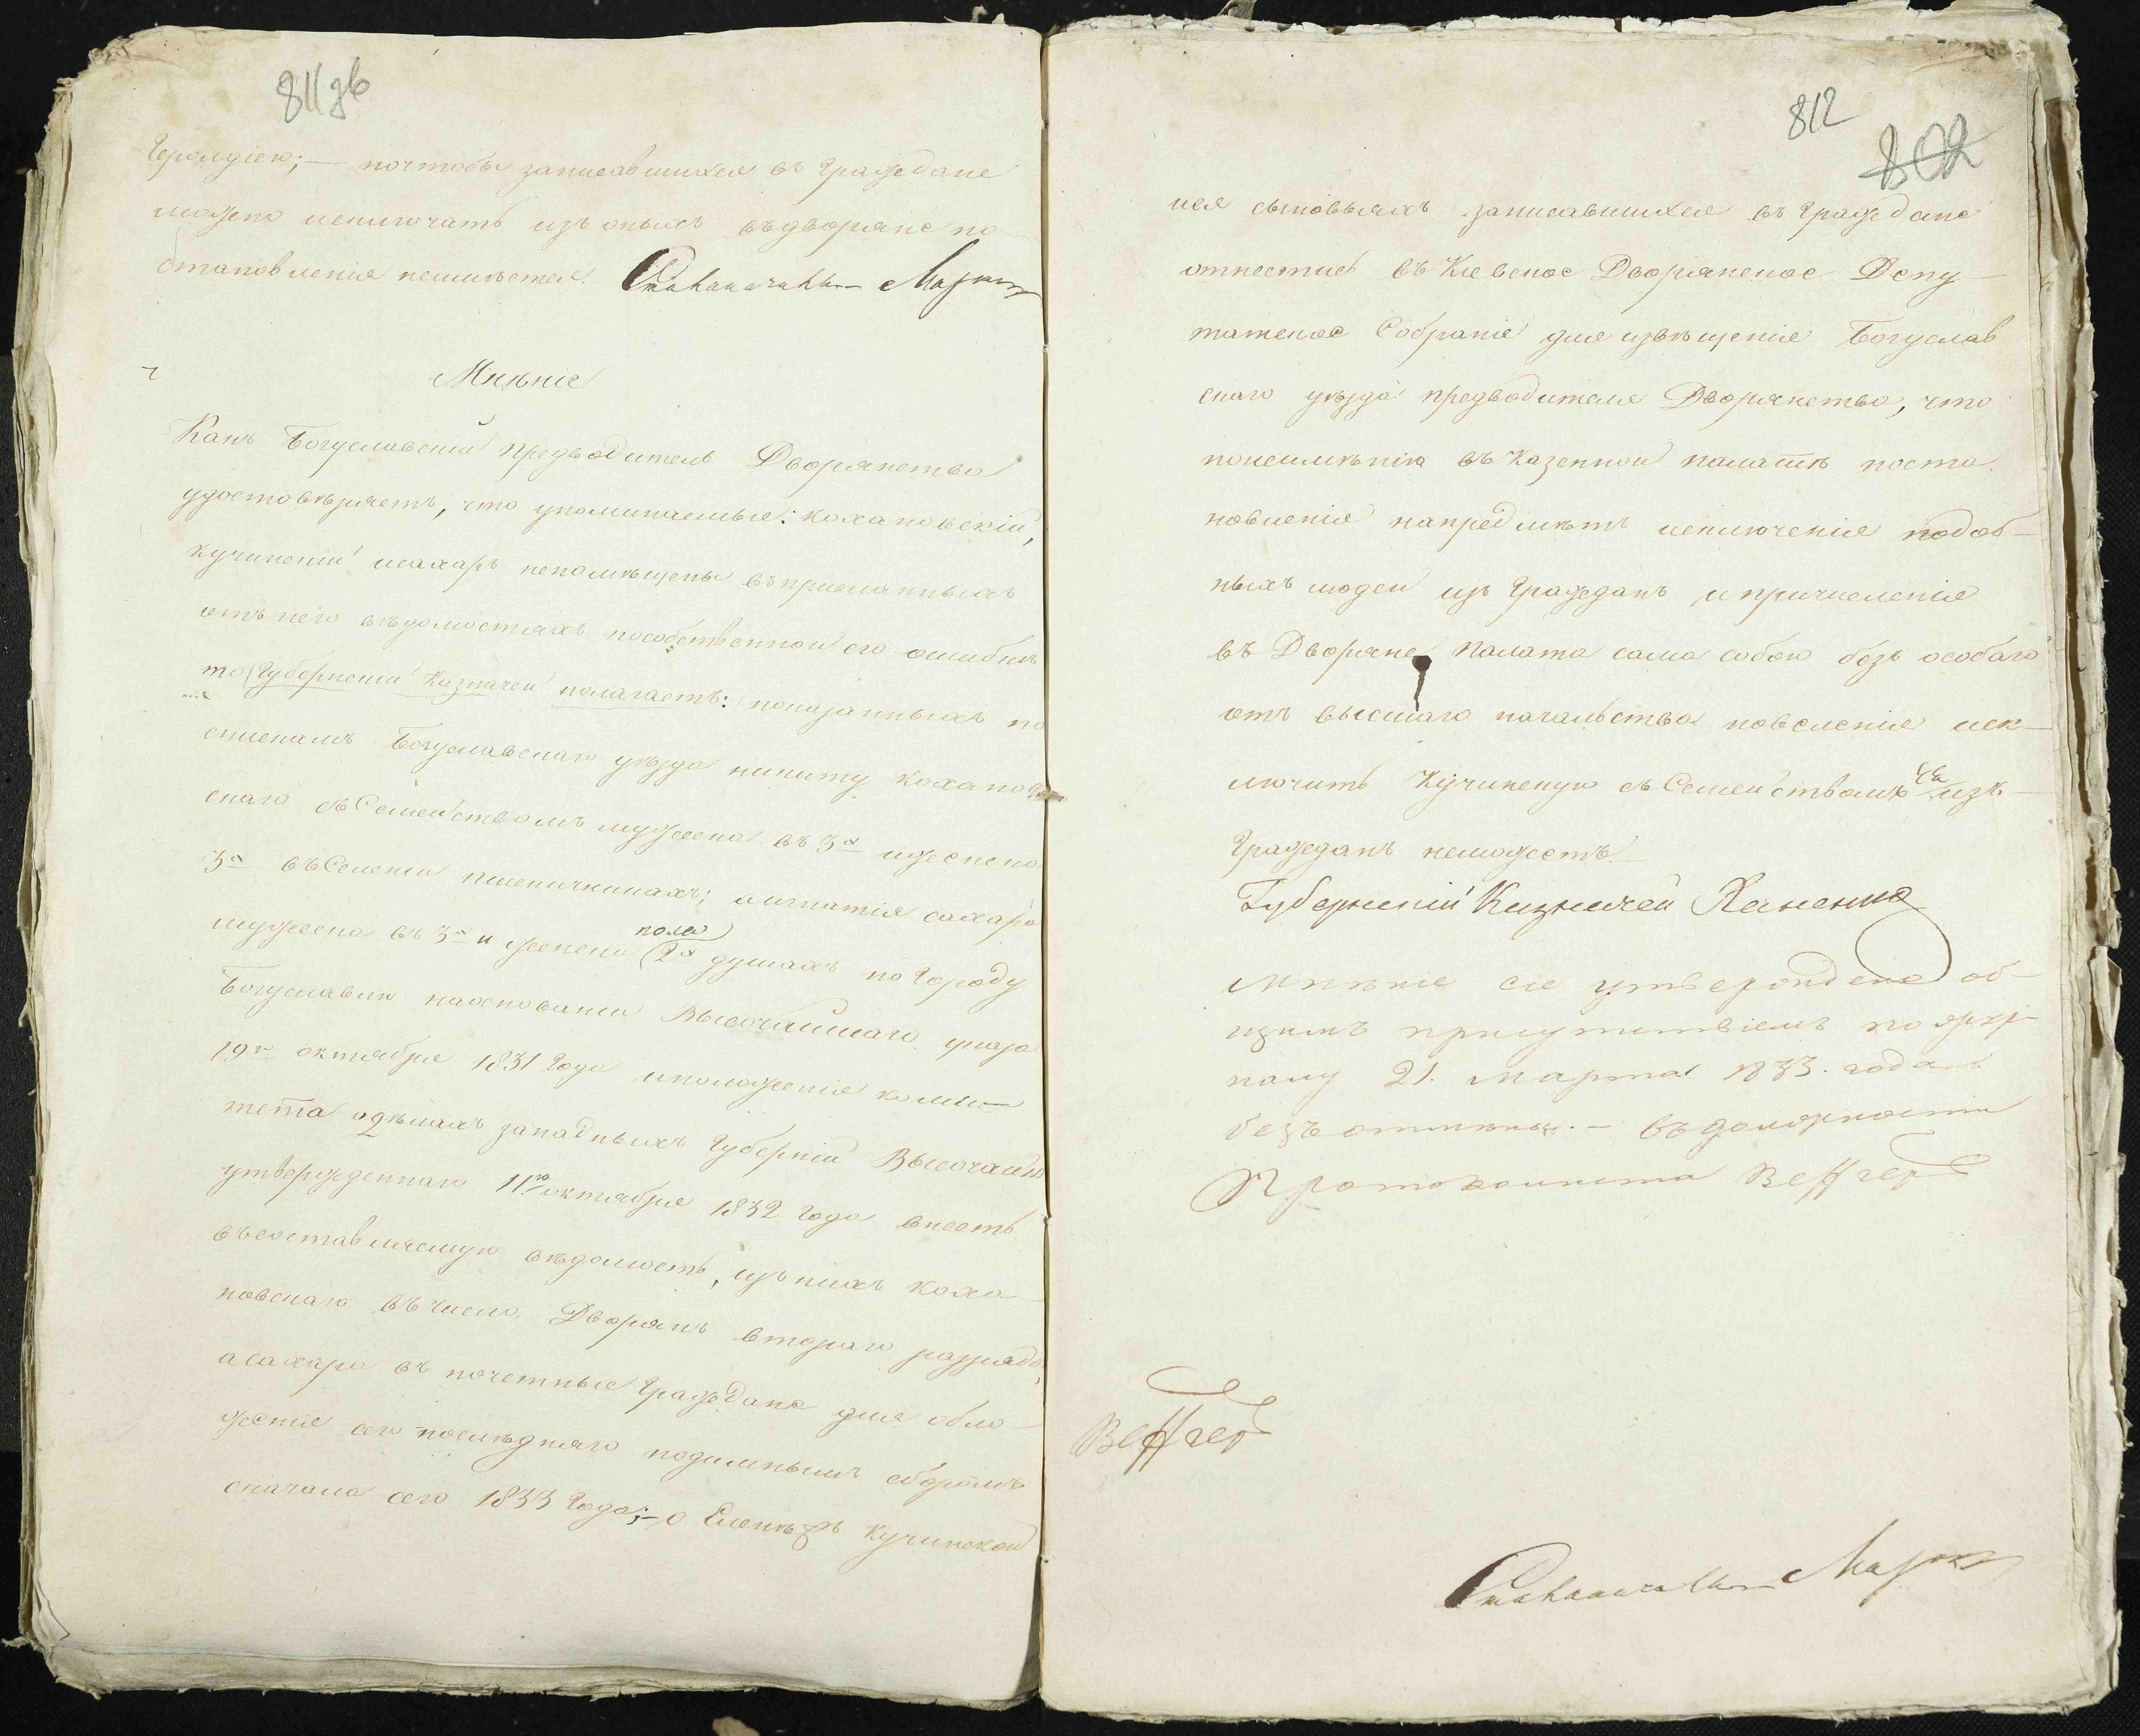 811 зв
Герольдіею; — почтобы записавшихся въ Граждане
можно исключать изъ оныхъ въдворяне по
становленія неимѣется. Столоначальникъ
Мнѣніе
Какъ Богуславскій предводитель Дворянства
удостовѣряетъ, что упоминаемые: Кохановскій,
Кучинскій исахаръ непомѣщены въприсланныхъ
отънего вѣдомостяхъ пособственной его ошибкѣ
то Губернскій Казначей полагаетъ: показанныхъ по
спискамъ Богуславскаго уѣзда никиту Коханов
скаго съСемействомъ мужеска въ 3х ижеnска
3х въСеленіи пшеничникахъ; аигнатія сахара
мужеска въ 3х и женска пола 2х душахъ по Городу
Богуславлю наоснованіи Высочайшаго указа
19го октября 1831 Года иположенія коми—
тета одѣлахъ западныхъ Губерній Высочайше
утвержденнаго 11го октября 1832 Года внесть
въсоставляемую вѣдомость, изъ нихъ коха
новскаго въ число Дворянъ втораго разряда,
асахара въ почетные Граждане для обло
женія сего послѣдняго подымнымъ сборомъ
сначала сего 1833 Года; — о Еленѣ Кучинской
812
802
исл сыновьяхъ записавшихся въ Граждане
отнестись въ Кіевское Дворянское Депу
татское Собраніе для извѣщенія Богуслав
скаго уѣзда предводителя Дворянства, что
понеимѣнію въ Казенной палатѣ поста
новленія напредмѣтъ исключенія подоб—
ныхъ людей изъ Гражданъ ипричисленія
въ Дворяне палата сама собою безъ особаго
отъ высшаго начальства повеленія иск—
лючить Кучинскую съ Семействомъ изъ
Гражданъ неможетъ. —
Губернскій Казначей Ханенко
Мнѣніе сіе утверждено об—
щимъ присутствіемъ по жур
налу 21. Марта 1833. года
безъ отмѣны. — Въ должности
Протоколиста
Столоначальникъ